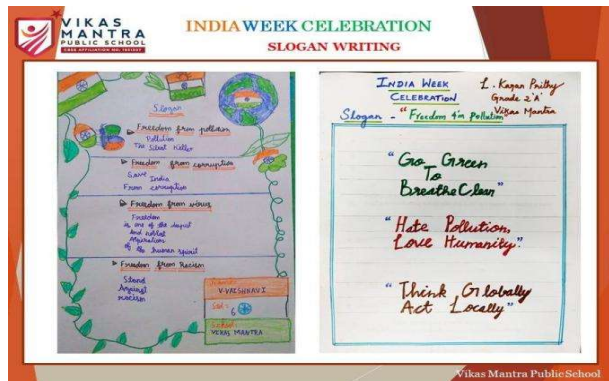 VIKAS
MANTRA
PUBLIC SCHOOL
INDIA WEEK CELEBRATION
SLOGAN WRITING
Slogan
Freedom from pollution
Pollution
The Silent Killer
Freedom from corruption
Save
India
From corruption
Freedom from virus
Freedom
is one of the deepest
and noblest
Aspirations
of the human spirit
Freedom from Racism
Stand
Against
racism
V.VAISHNAVI
6
VIKAS MANTRA
INDIA WEEK
CELEBRATION
Slogan - "Freedom 4'm Pollution"
Grade 2 'A'
Vikas Mantra
"Go Green
To
Breathe Clean"
"Hate Pollution,
Love Humanity."
"Think Globally
Act Locally"
Vikas Mantra Public School